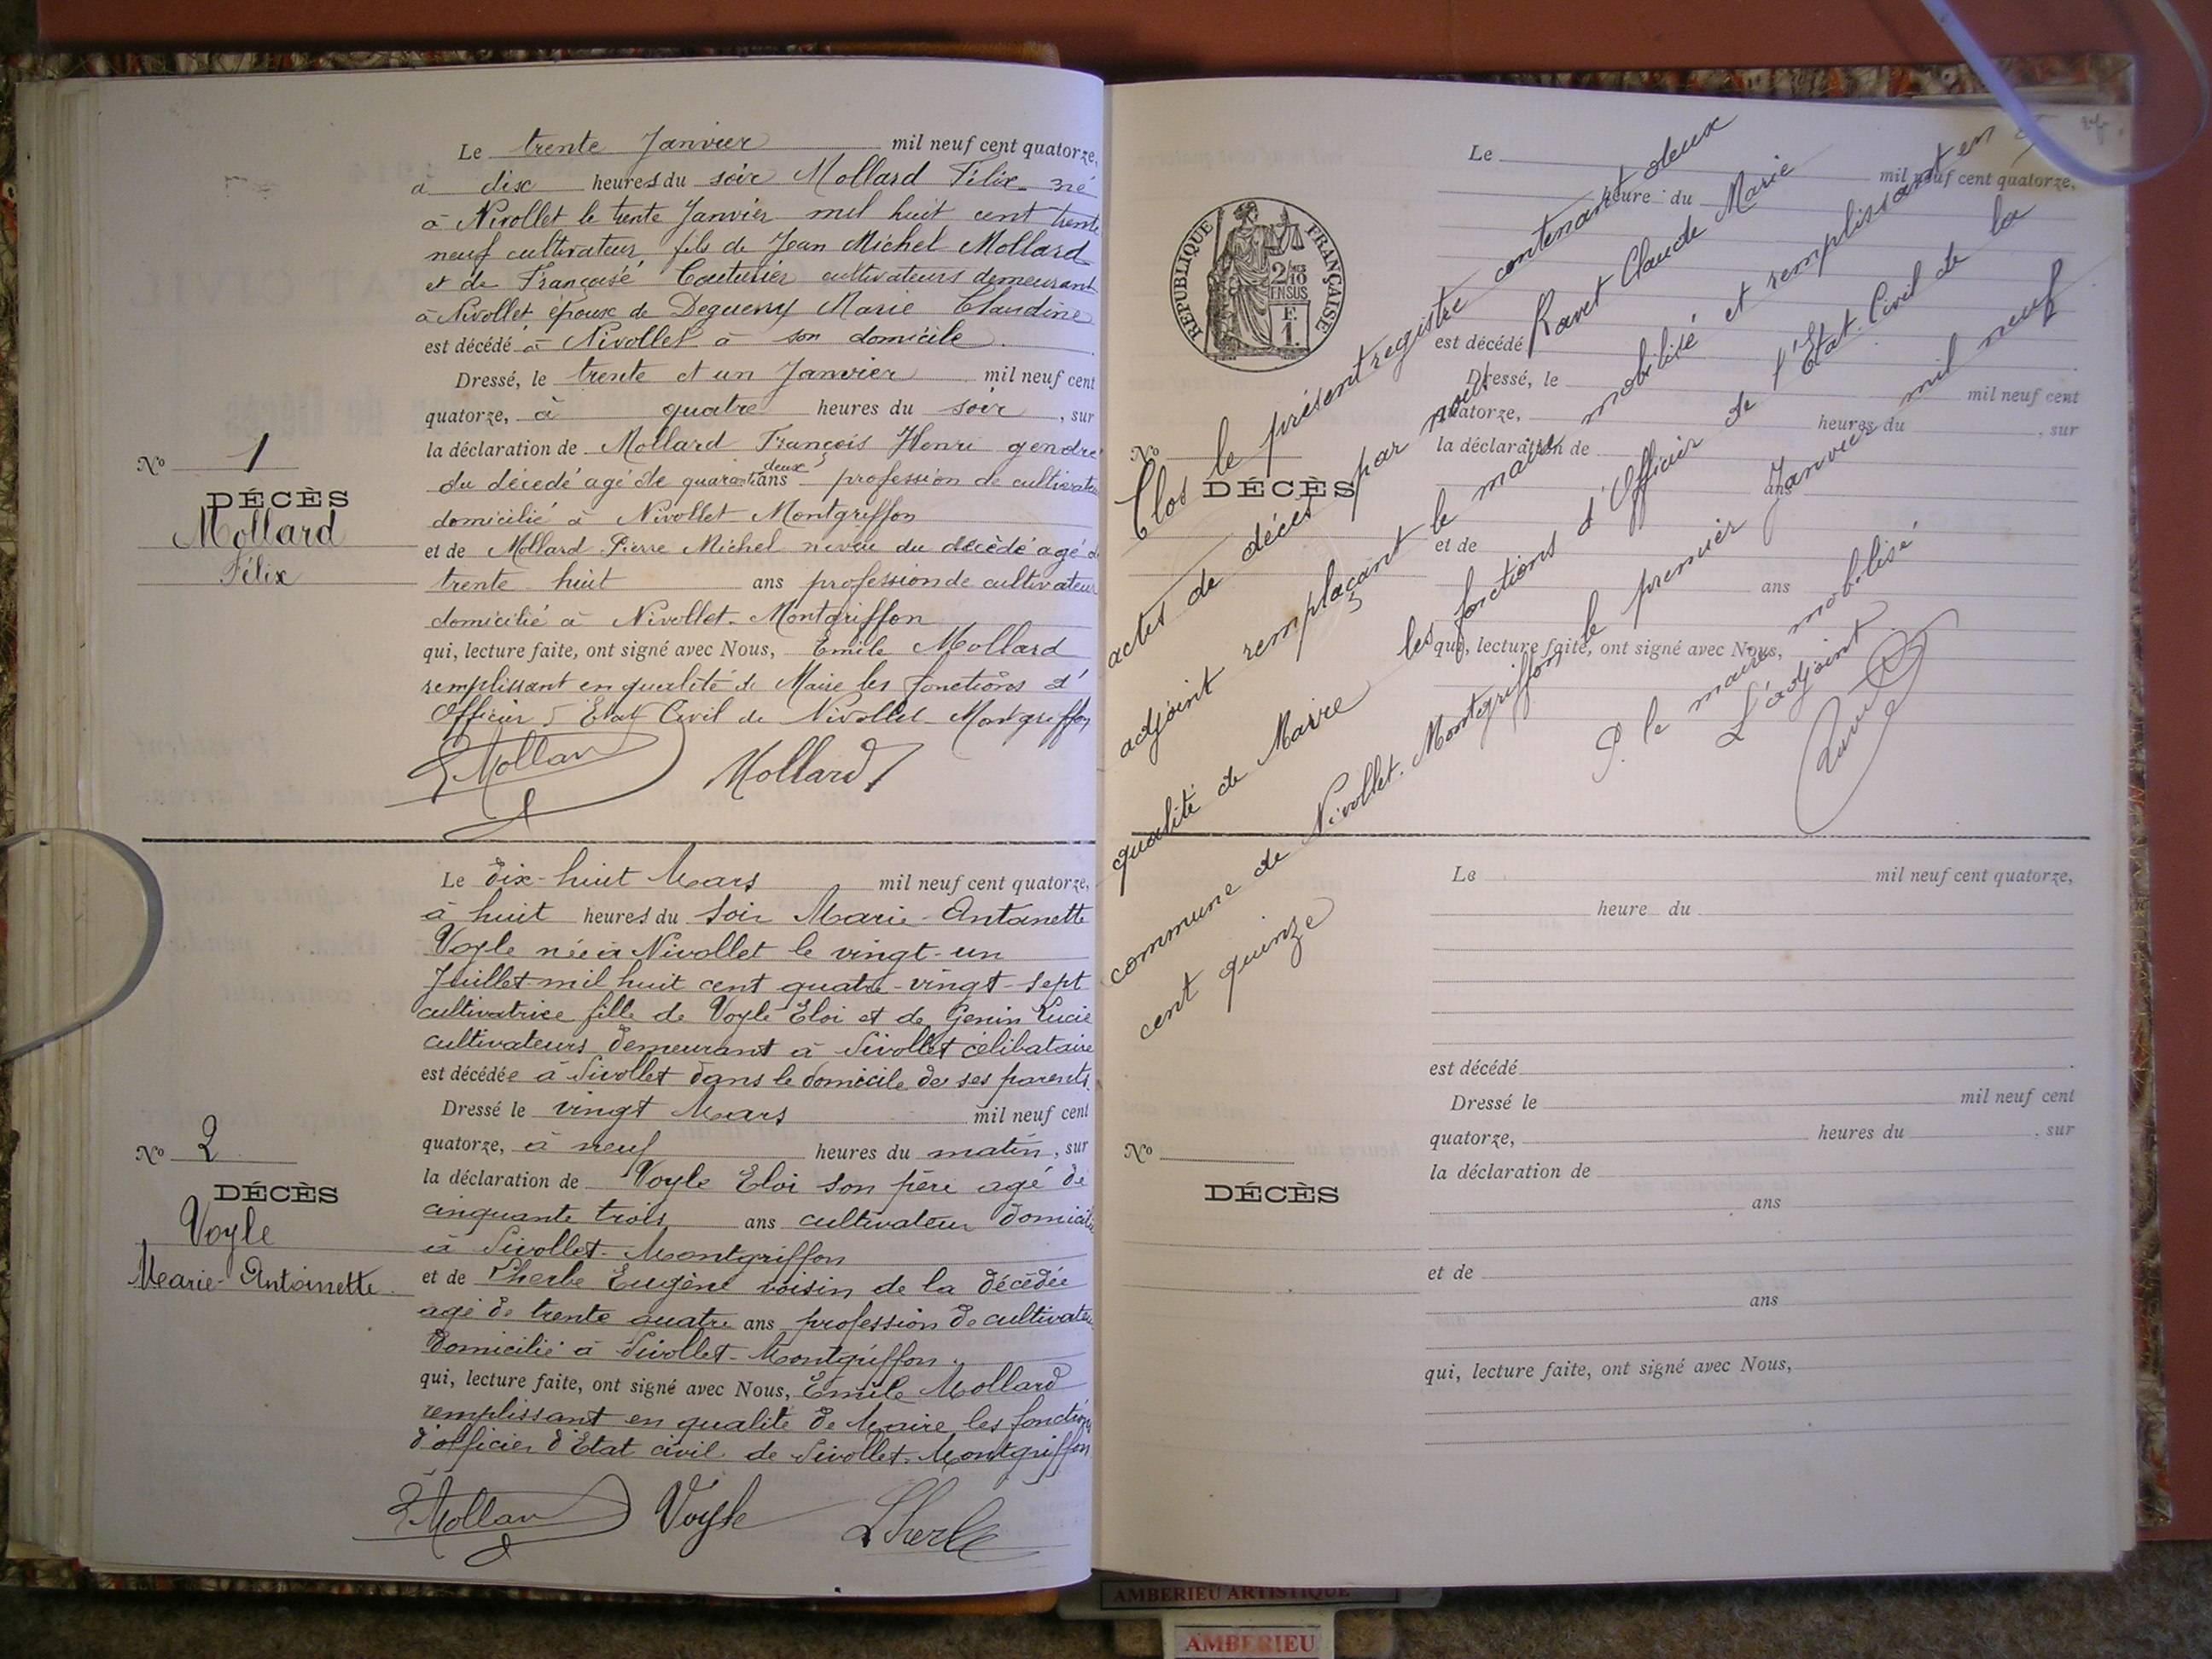 Le trente Janvier mil neuf cent quatorze,
a disc heures du soir Mollard Félix né
à Nivollet le trente Janvier mil huit cent trente
neuf cultivateur fils de Jean Michel Mollard
et de Françoise Couturier cultivateurs demeurant
à Nivollet époux de Marie Claudine
est décédé à Nivollet à son domicile.
Dressé, le trente et un Janvier mil neuf cent
quatorze, à quatre heures du soir, sur
la déclaration de Mollard François Henri gendre
du décedé agé de quarante deux ans profession de cultivateu
domicilié à Nivollet-Montgriffon
et de Mollard Pierre Michel neveu du décèdé agé d
trente huit ans profession de cultivateur
domicilié à Nivollet-Montgriffon
qui, lecture faite, ont signé avec Nous, Emile Mollard
remplissant en qualité de Maire les fonctions d'
Officier d'Etat Civil de Nivollet-Montgriffon
E Mollard Mollard
No 1
DÉCÈS
Mollard
Félix
Le dix-huit Mars mil neuf cent quatorze,
à huit heures du soir Marie-Antoinette
Voyle née à Nivollet le vingt-un
Juillet mil huit cent quatre-vingt-sept
cultivatrice fille de Voyle Eloi et de Genin Lucie
cultivateurs demeurant à Nivollet célibataire
est décédée à Nivollet dans le domicile de ses parents.
Dressé le vingt Mars mil neuf cent
quatorze, à neuf heures du matin, sur
la déclaration de Voyle Eloi son père agé de
cinquante trois ans cultivateur domicilié
à Nivollet-Montgriffon
et de Lherbe Eugène voisin de la décèdée
agé de trente quatre ans profession de cultivateu
domicilié à Nivollet-Montgriffon.
qui, lecture faite, ont signé avec Nous, Emile Mollard
remplissant en qualité de Maire les fonctions
d'officier d'Etat civil de Nivollet-Montgriffon
E Mollard Voyle Lherbe
No 2
DÉCÈS
Voyle
Marie-Antoinette
RÉPUBLIQUE FRANÇAISE
2/10 EN SUS
F. 1.
Clos le présent registre contenant deux
actes de décès par nous Ravet Claude Marie
adjoint remplaçant le maire mobilisé et remplissant en
qualité de Maire les fonctions d'Officier de l'Etat-Civil de la
commune de Nivollet-Montgriffon le premier Janvier mil neuf
cent quinze
P. le maire mobilisé
L'adjoint
Ravet
Le mil neuf cent quatorze,
heure du
est décédé
Dressé, le mil neuf cent
quatorze, heures du , sur
la déclaration de
ans
et de
ans
qui, lecture faite, ont signé avec Nous,
No
DÉCÈS
Le mil neuf cent quatorze,
heure du
est décédé
Dressé le mil neuf cent
quatorze, heures du , sur
la déclaration de
ans
et de
ans
qui, lecture faite, ont signé avec Nous,
No
DÉCÈS
AMBERIEU ARTISTIQUE
AMBERIEU